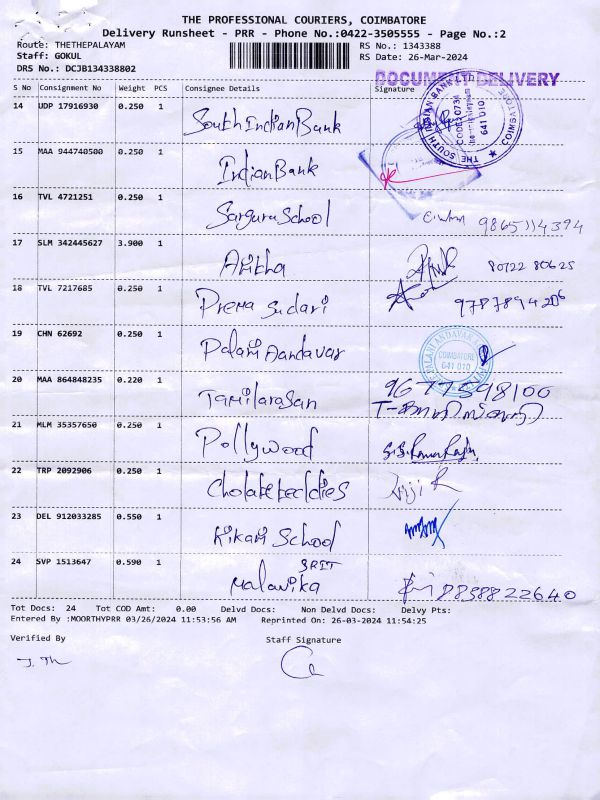 THE PROFESSIONAL COURIERS, COIMBATORE
Delivery Runsheet - PRR - Phone No.:0422-3505555 - Page No.:2
Route: THETHEPALAYAM RS No.: 1343388
Staff: GOKUL RS Date: 26-Mar-2024
DRS No.: DCJB134338802
DOCUMENT DELIVERY
S No Consignment No Weight PCS Consignee Details Signature
14 UDP 17916930 0.250 1 South Indian Bank
THE SOUTH INDIAN BANK LTD COIMBATORE 641 010
15 MAA 944740500 0.250 1 Indian Bank
16 TVL 4721251 0.250 1 Sarguru School 9865114394
17 SLM 342445627 3.900 1 80722 80625
18 TVL 7217685 0.250 1 Prema Sudari
19 CHN 62692 0.250 1 Palani Aandavar
COIMBATORE 641 010
20 MAA 864848235 0.220 1 Tamilarasan 9677598100
21 MLM 35357650 0.250 1 Pollywood
22 TRP 2092906 0.250 1
23 DEL 912033285 0.550 1 Kikani School
24 SVP 1513647 0.590 1 Malavika SRIT 8838822640
Tot Docs: 24 Tot COD Amt: 0.00 Delvd Docs: Non Delvd Docs: Delvy Pts:
Entered By :MOORTHYPRR 03/26/2024 11:53:56 AM Reprinted On: 26-03-2024 11:54:25
Verified By Staff Signature